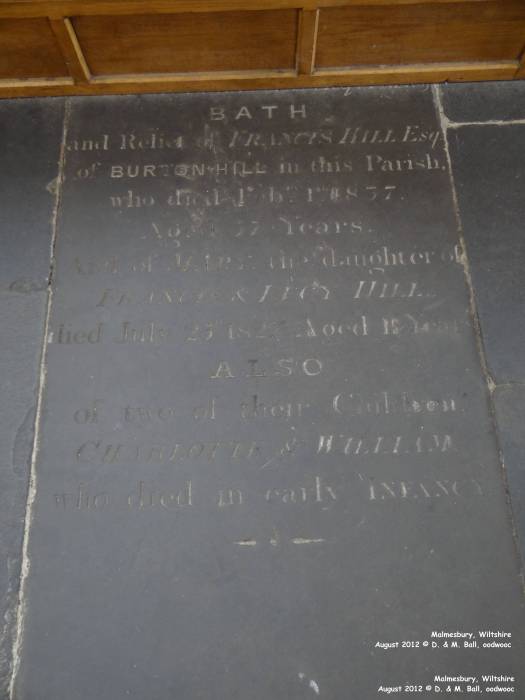 BATH
and Relict of FRANCIS HILL Esq.
of BURTON HILL in this Parish,
who died Feb.y 1st 1837.
Aged 57 Years.
And of MARY the daughter of
FRANCIS & LUCY HILL.
died July 23d 182 Aged Years
ALSO
of two of their Children
CHARLOTTE & WILLIAM
who died in early INFANCY
Malmesbury, Wiltshire
August 2012 © D. & M. Ball, oodwooc
Malmesbury, Wiltshire
August 2012 © D. & M. Ball, oodwooc